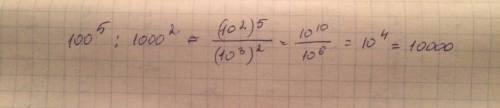 100⁵ : 1000² = (10²)⁵/(10³)² = 10¹⁰/10⁶ = 10⁴ = 10000